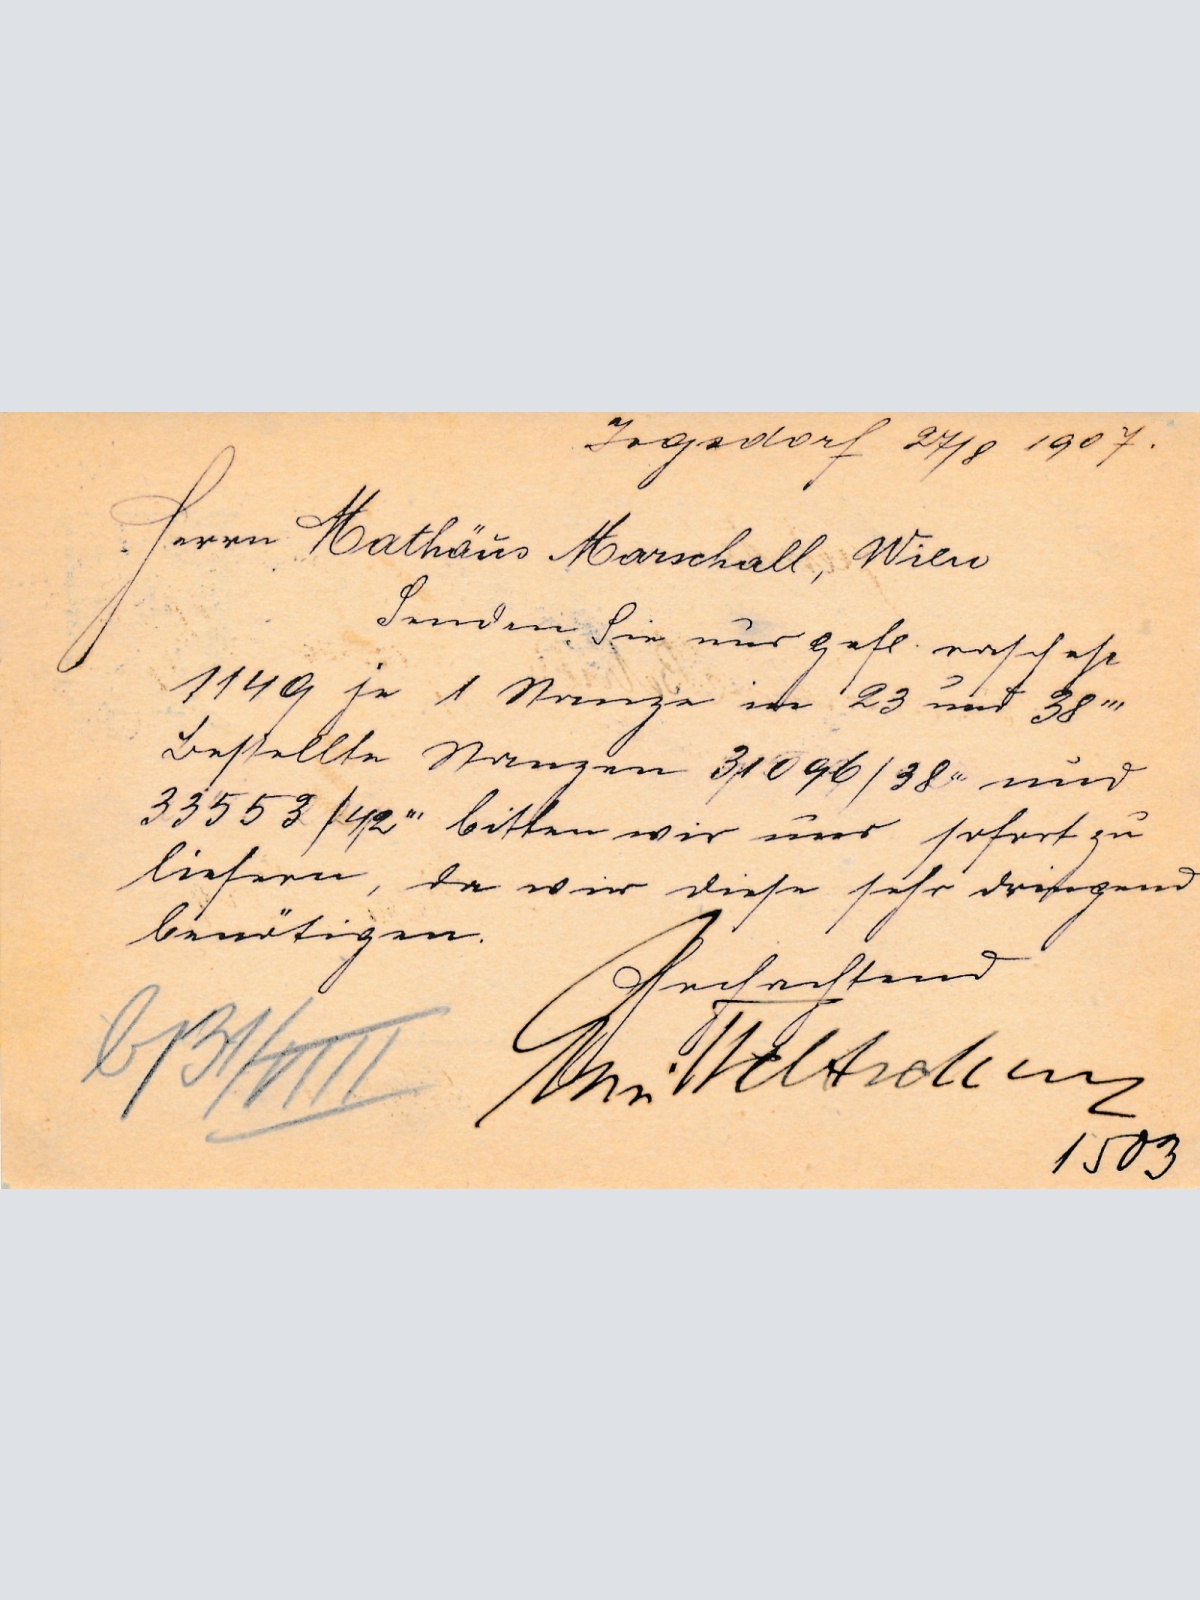 Jogsdorf 27/8 1907.
Herrn Mathäus Marschall, Wien
Senden Sie uns gefl. raschest
1149 je 1 Stanze in 23 und 38'''
Bestellte Stanzen 31096/38'' und
33553/42''' bitten wir uns sofort zu
liefern, da wir diese sehr dringend
benötigen.
Hochachtend
1503